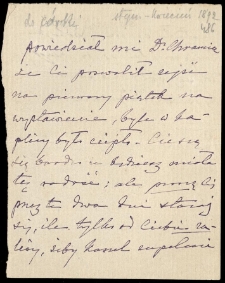 do córki stycz-kwiecień 1892
Powiedział mi Dr Chramiec
że Ci pozwolił zejść
na pierwszy piątek na
wystawienie, byle w ka-
plicy było ciepło. Cieszę
się bardzo że będziesz miała
tę radość; ale proszę Cię
przez te dwa dni staraj
się, ile tylko od Ciebie za-
leży, żeby kaszel zupełnie